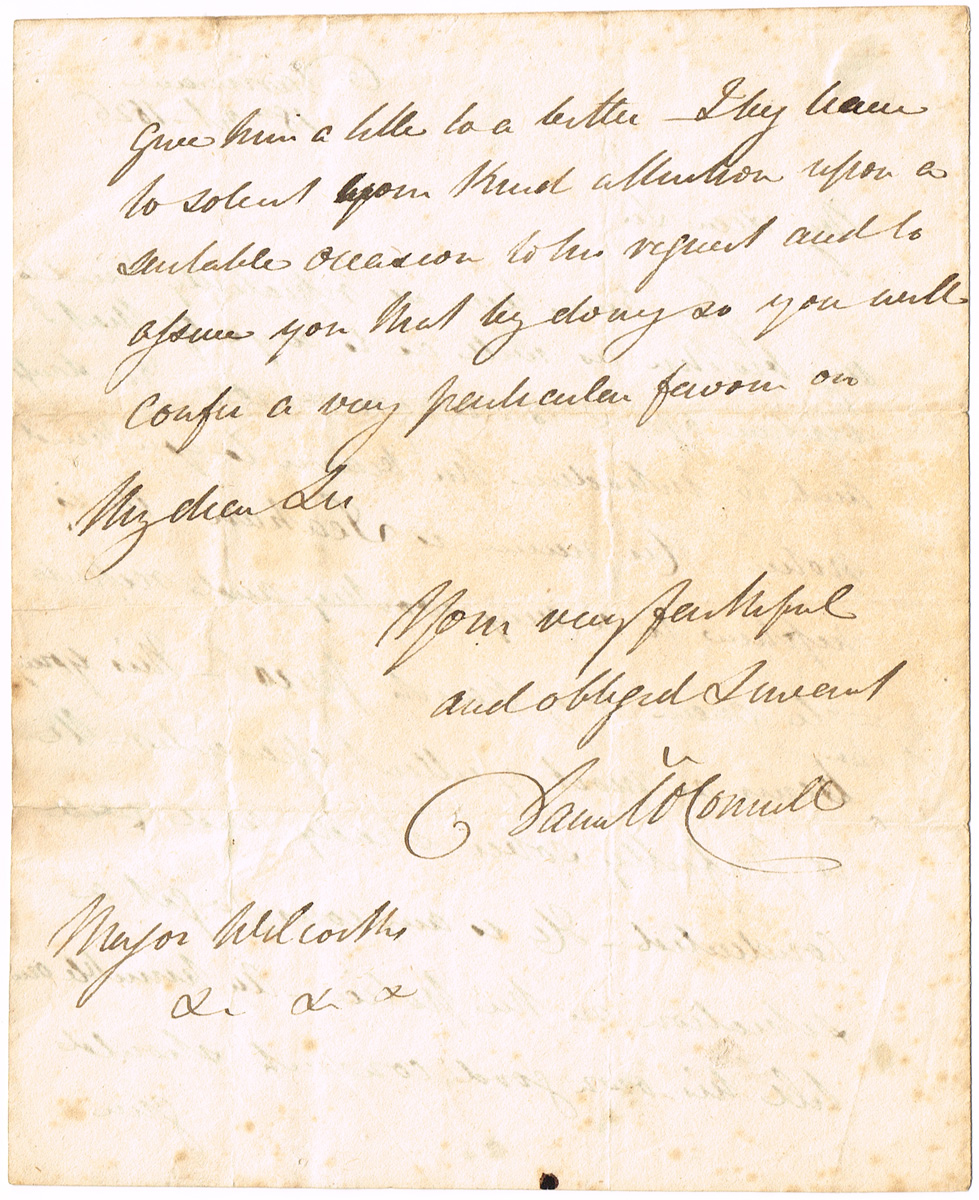 give him a title to a better — I beg leave
to solicit your kind attention upon a
suitable occasion to his request and to
assure you that by doing so you will
confer a very particular favour on
My dear Sir
Your very faithful
and obliged Servant
Daniel O'Connell
Major Wilcocks
&c &c &c